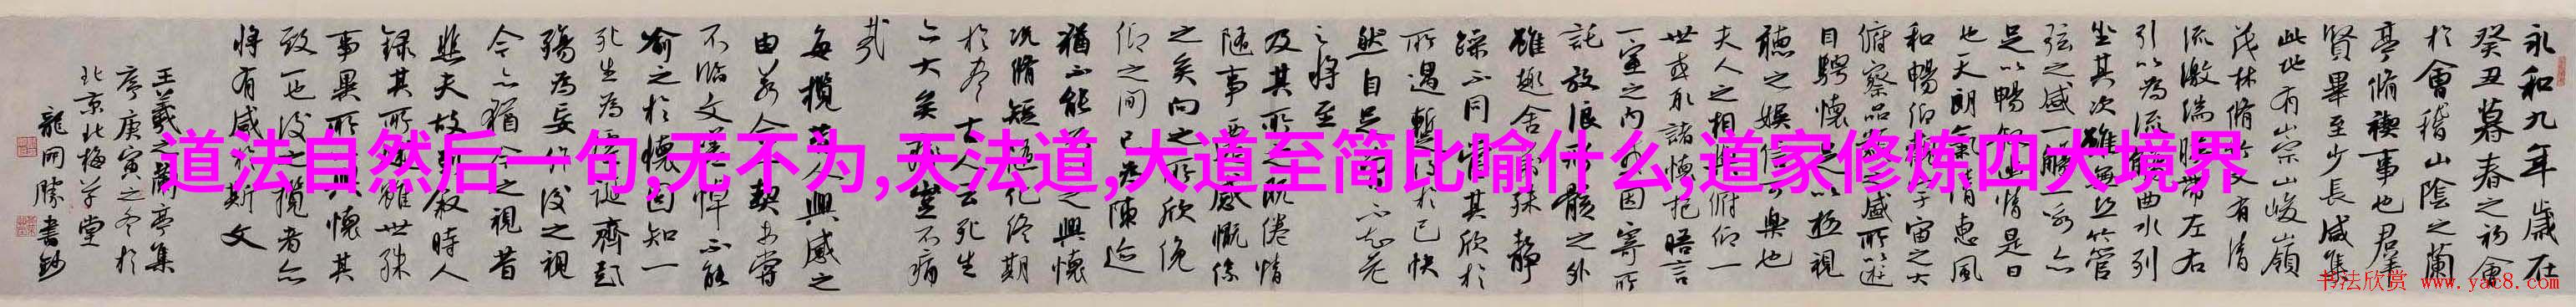 永和九年歲在
癸丑暮春之初會
於會稽山陰之蘭
亭脩禊事也群
賢畢至少長咸集
此地有崇山峻嶺
茂林脩竹又有清
流激湍暎帶左右
引以為流觴曲水列
坐其次雖無絲竹管
弦之盛一觴一詠亦
足以暢敘幽情是日
也天朗氣清惠風
和暢仰觀宇宙之大
俯察品類之盛所以遊
目騁懷足以極視
聽之娛信可樂也
夫人之相與俯仰一
世或取諸懷抱晤言
一室之內或因寄所
託放浪形骸之外
雖趣舍萬殊靜
躁不同當其欣於
所遇暫得於己快
然自足不知老
之將至
及其所之既倦情
隨事遷感慨係
之矣向之所欣俛
仰之間已為陳迹
猶不能不以之興懷
況脩短隨化終期
於盡古人云死生
亦大矣豈不痛
哉
每攬昔人興感之
由若合一契未嘗
不臨文嗟悼不能
喻之於懷固知一
死生為虛誕齊彭
殤為妄作後之視
今亦猶今之視昔
悲夫故列敘時人
錄其所述雖世殊
事異所以興懷其
致一也後之攬者亦
將有感於斯文
王羲之蘭亭集
序庚寅之冬於
北京北梅草堂
龍開勝書鈔
道法自然后一句,无不为,天法道,大道至简比喻什么,道家修炼四大境界
书法欣赏 www.yac8.com